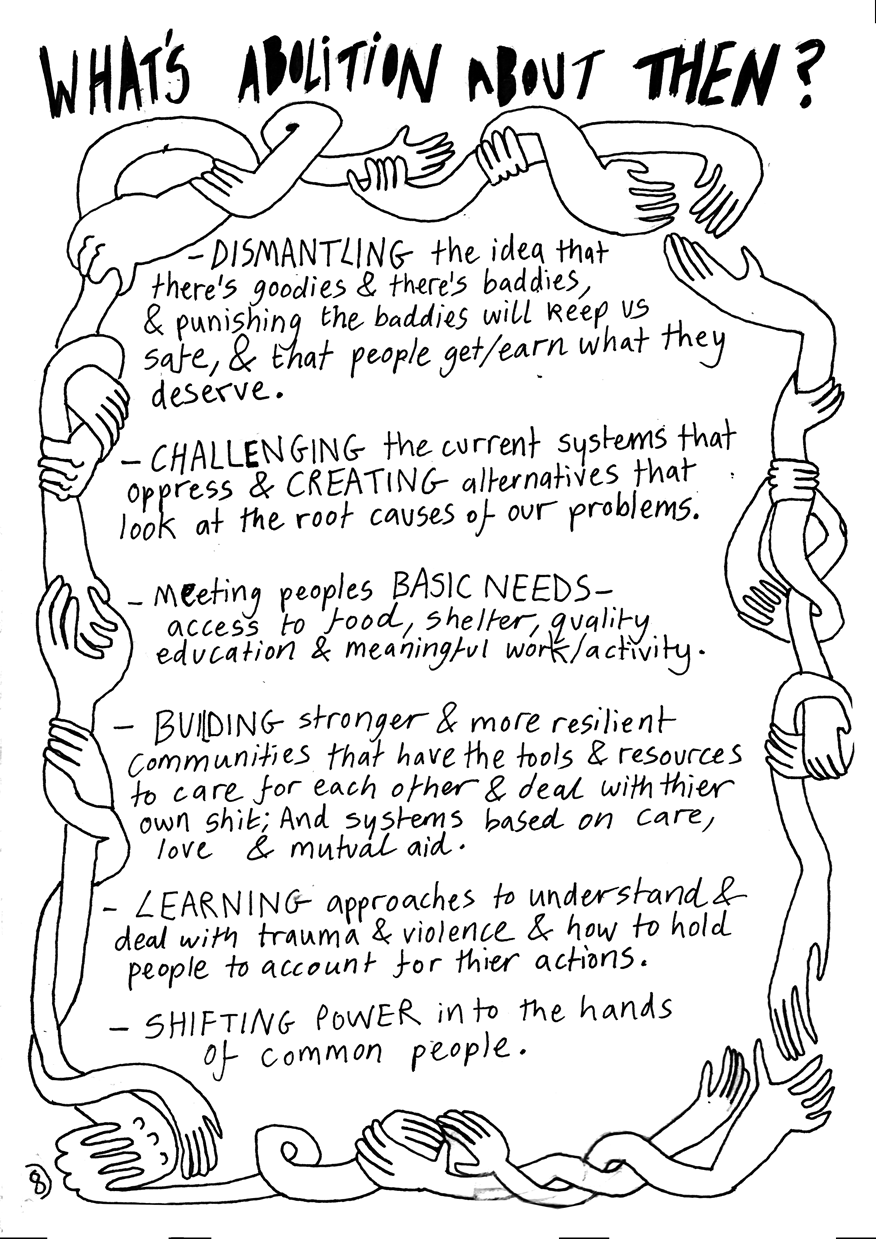 WHAT'S ABOLITION ABOUT THEN?
- DISMANTLING the idea that
there's goodies & there's baddies,
& punishing the baddies will keep us
safe, & that people get/earn what they
deserve.
- CHALLENGING the current systems that
oppress & CREATING alternatives that
look at the root causes of our problems.
- Meeting peoples BASIC NEEDS-
access to food, shelter, quality
education & meaningful work/activity.
- BUILDING stronger & more resilient
communities that have the tools & resources
to care for each other & deal with thier
own shit; And systems based on care,
love & mutual aid.
- LEARNING approaches to understand &
deal with trauma & violence & how to hold
people to account for thier actions.
- SHIFTING POWER in to the hands
of common people.
8